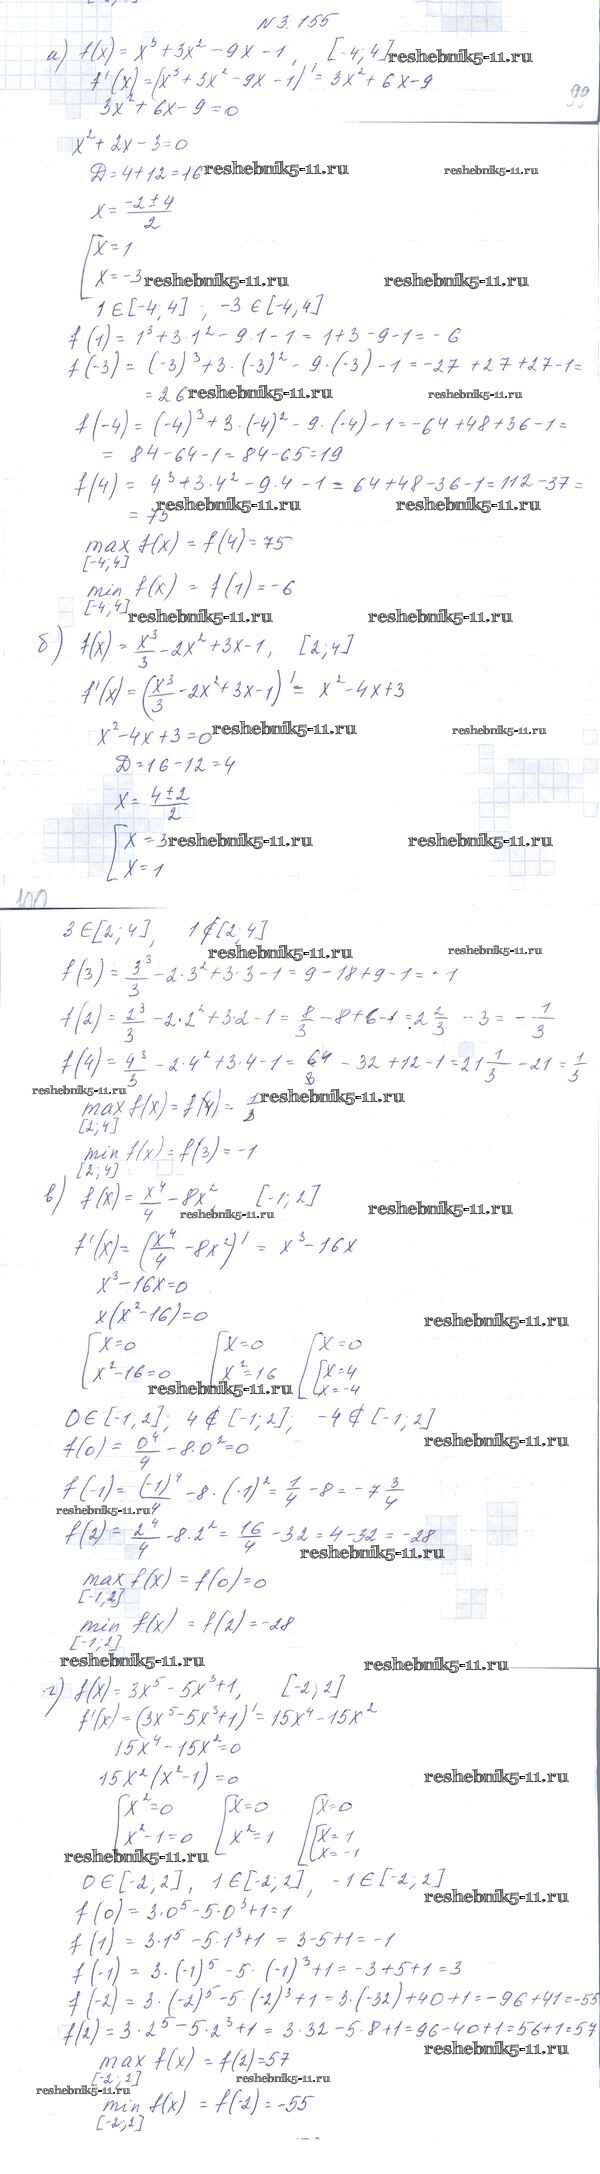 N 3.155
а) f(x) = x³ + 3x² - 9x - 1, [-4; 4] reshebnik5-11.ru
f'(x) = (x³ + 3x² - 9x - 1)' = 3x² + 6x - 9
99
3x² + 6x - 9 = 0
x² + 2x - 3 = 0
D = 4 + 12 = 16 reshebnik5-11.ru reshebnik5-11.ru
x = (-2 ± 4)/2
[ x = 1
x = -3 reshebnik5-11.ru reshebnik5-11.ru
1 ∈ [-4; 4] ; -3 ∈ [-4; 4]
f(1) = 1³ + 3·1² - 9·1 - 1 = 1 + 3 - 9 - 1 = -6
f(-3) = (-3)³ + 3·(-3)² - 9·(-3) - 1 = -27 + 27 + 27 - 1 =
= 26 reshebnik5-11.ru reshebnik5-11.ru
f(-4) = (-4)³ + 3·(-4)² - 9·(-4) - 1 = -64 + 48 + 36 - 1 =
= 84 - 64 - 1 = 84 - 65 = 19
f(4) = 4³ + 3·4² - 9·4 - 1 = 64 + 48 - 36 - 1 = 112 - 37 =
reshebnik5-11.ru reshebnik5-11.ru
= 75
max f(x) = f(4) = 75
[-4; 4]
min f(x) = f(1) = -6
[-4; 4]
reshebnik5-11.ru reshebnik5-11.ru
б) f(x) = x³/3 - 2x² + 3x - 1, [2; 4]
f'(x) = (x³/3 - 2x² + 3x - 1)' = x² - 4x + 3
x² - 4x + 3 = 0 reshebnik5-11.ru reshebnik5-11.ru
D = 16 - 12 = 4
x = (4 ± 2)/2
[ x = 3 reshebnik5-11.ru reshebnik5-11.ru
x = 1
100
3 ∈ [2; 4], 1 ∉ [2; 4]
reshebnik5-11.ru reshebnik5-11.ru
f(3) = 3³/3 - 2·3² + 3·3 - 1 = 9 - 18 + 9 - 1 = -1
f(2) = 2³/3 - 2·2² + 3·2 - 1 = 8/3 - 8 + 6 - 1 = 2 2/3 - 3 = -1/3
f(4) = 4³/3 - 2·4² + 3·4 - 1 = 64/3 - 32 + 12 - 1 = 21 1/3 - 21 = 1/3
reshebnik5-11.ru reshebnik5-11.ru
max f(x) = f(4) = 1/3
[2; 4]
min f(x) = f(3) = -1
[2; 4]
в) f(x) = x⁴/4 - 8x², [-1; 2]
reshebnik5-11.ru reshebnik5-11.ru
f'(x) = (x⁴/4 - 8x²)' = x³ - 16x
x³ - 16x = 0
x(x² - 16) = 0 reshebnik5-11.ru
[ x = 0 [ x = 0 [ x = 0
x² - 16 = 0 x² = 16 [ x = 4
x = -4
reshebnik5-11.ru
0 ∈ [-1, 2]; 4 ∉ [-1; 2]; -4 ∉ [-1; 2]
reshebnik5-11.ru
f(0) = 0⁴/4 - 8·0² = 0
f(-1) = (-1)⁴/4 - 8·(-1)² = 1/4 - 8 = -7 3/4
reshebnik5-11.ru
f(2) = 2⁴/4 - 8·2² = 16/4 - 32 = 4 - 32 = -28
reshebnik5-11.ru
max f(x) = f(0) = 0
[-1, 2]
min f(x) = f(2) = -28
[-1; 2]
reshebnik5-11.ru reshebnik5-11.ru
г) f(x) = 3x⁵ - 5x³ + 1, [-2; 2]
f'(x) = (3x⁵ - 5x³ + 1)' = 15x⁴ - 15x²
15x⁴ - 15x² = 0
15x²(x² - 1) = 0 reshebnik5-11.ru
[ x² = 0 [ x = 0 [ x = 0
x² - 1 = 0 x² = 1 [ x = 1
x = -1
reshebnik5-11.ru
0 ∈ [-2; 2], 1 ∈ [-2; 2], -1 ∈ [-2; 2]
reshebnik5-11.ru
f(0) = 3·0⁵ - 5·0³ + 1 = 1
f(1) = 3·1⁵ - 5·1³ + 1 = 3 - 5 + 1 = -1
f(-1) = 3·(-1)⁵ - 5·(-1)³ + 1 = -3 + 5 + 1 = 3
f(-2) = 3·(-2)⁵ - 5·(-2)³ + 1 = 3·(-32) + 40 + 1 = -96 + 41 = -55
f(2) = 3·2⁵ - 5·2³ + 1 = 3·32 - 5·8 + 1 = 96 - 40 + 1 = 56 + 1 = 57
reshebnik5-11.ru
max f(x) = f(2) = 57
[-2; 2] reshebnik5-11.ru
reshebnik5-11.ru
min f(x) = f(-2) = -55
[-2; 2]